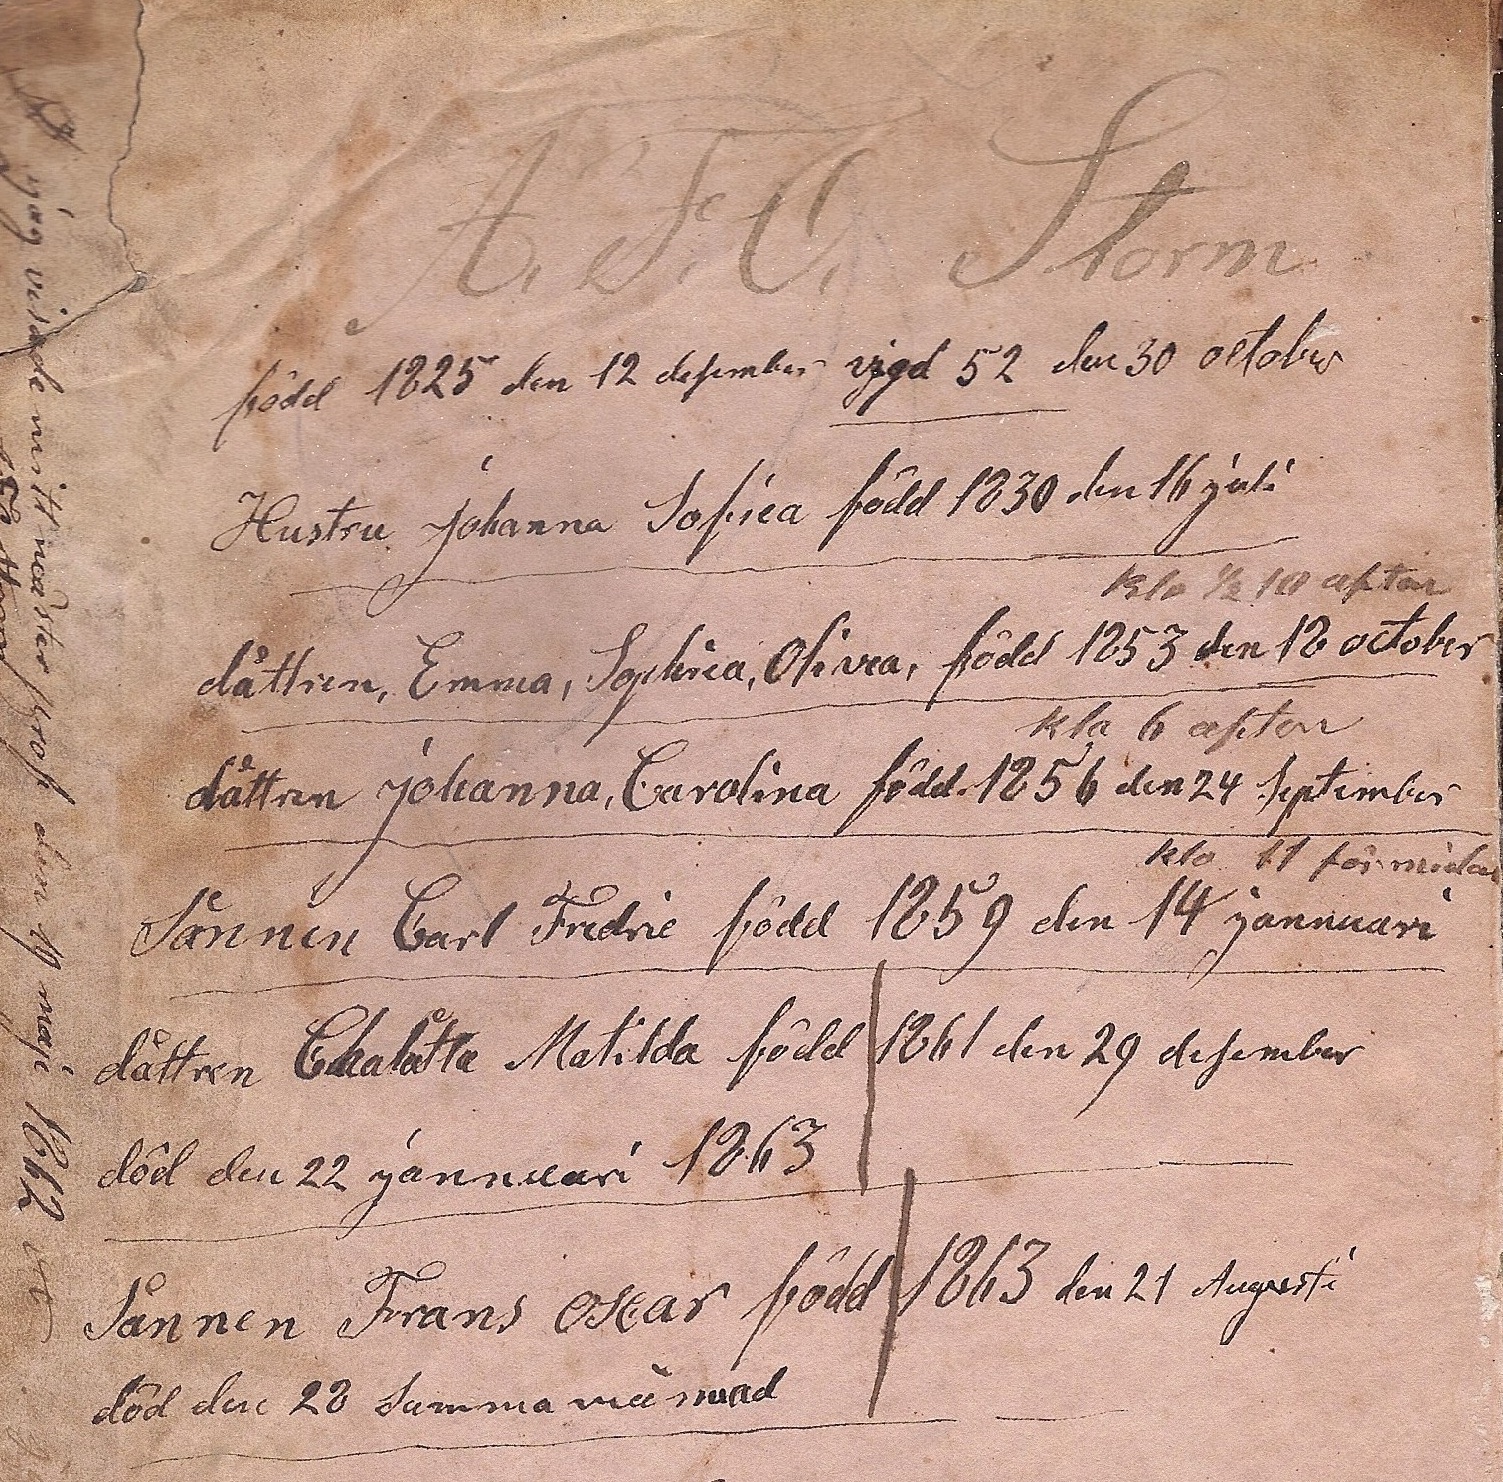 A. F. C. Storm
född 1825 den 12 desember vigd 52 den 30 october
Hustru Johanna Sofiea född 1830 den 16 juli
klo ½ 10 afton
dåttren, Emma, Sophiea, Olivea, född 1853 den 18 october
klo 6 afton
dåttren Johanna, Carolina född 1856 den 24 September
klo 11 förmidag
Sånnen Carl Fredric född 1859 den 14 jannuari
dåttren Chalåtta Matilda född 1861 den 29 desember
död den 22 jannuari 1863
Sånnen Frans Oscar född 1863 den 21 Augusti
död den 28 samma månad
jag visade mitt mäster prof den 19 maji 1862